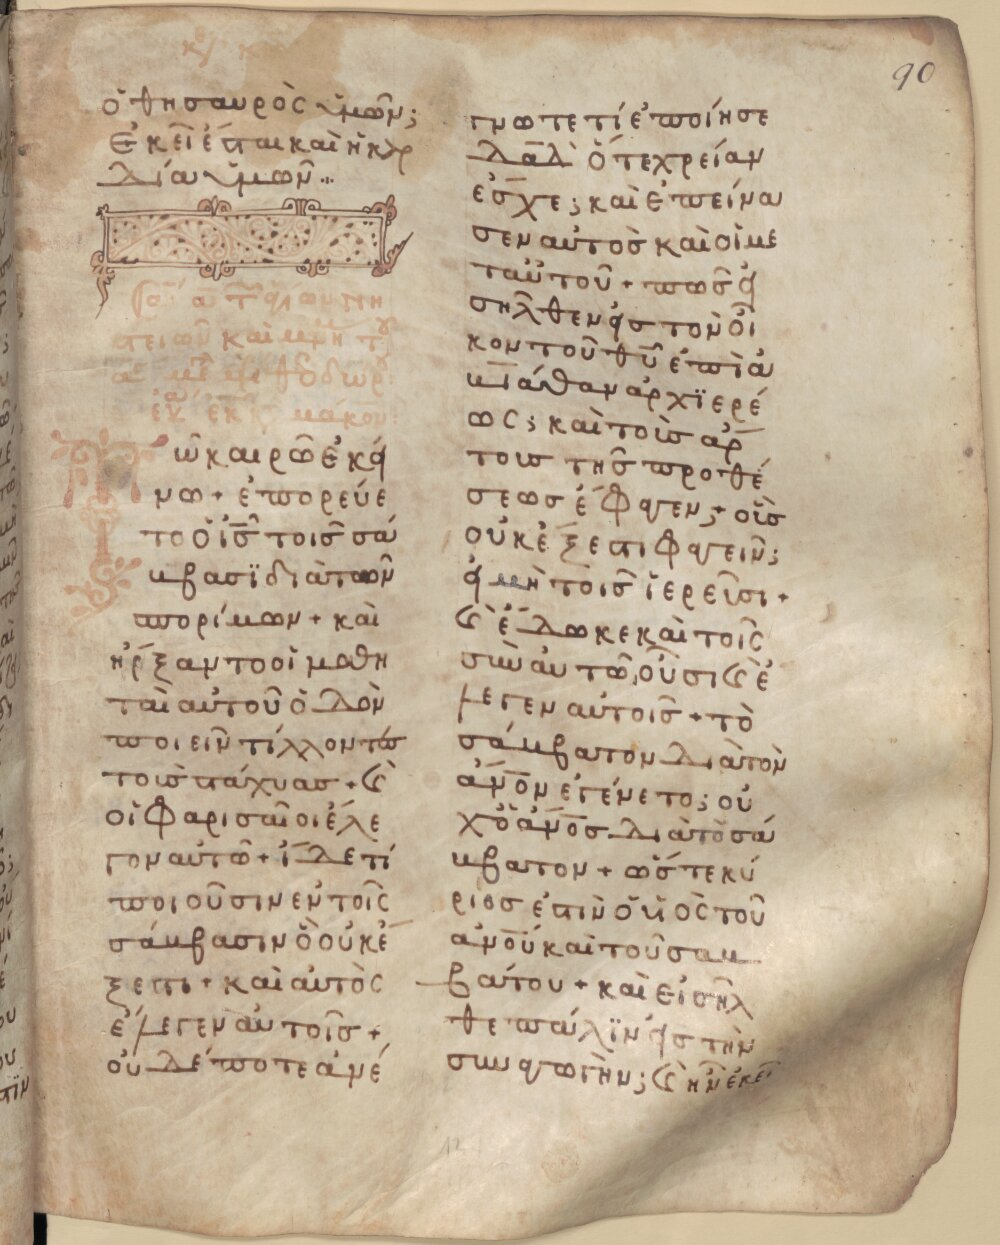 90
ὁ θησαυρὸς ὑμῶν;
ἐκεῖ ἔσται καὶ ἡ καρ
δία ὑμῶν
τῶ καιρῶ ἐκεί
νω + ἐπορεύε
το ὁ ἰς τοῖς σά
μβασϊ διὰ τῶν
σπορίμων + καὶ
ἤρξαντο οἱ μαθη
ταὶ αὐτοῦ ὁδὸν
ποιεῖν τίλλοντες
τοὺς στάχυας + καὶ
οἱ Φαρισαῖοι ἔλε
γον αὐτῶ + ἴδε τί
ποιοῦσιν ἐν τοῖς
σάμβασιν ὃ οὐκ ἔ
ξεστι + καὶ αὐτὸς
ἔλεγεν αὐτοῖς +
οὐδέποτε ἀνέ
γνωτε τί ἐποίησε
δαδ ὅτε χρείαν
ἔσχε; καὶ ἐπείνα
σεν αὐτὸς καὶ οἱ με
τ αὐτοῦ + πῶς εἰ
σῆλθεν εἰς τὸν οἶ
κον τοῦ θῦ ἐπὶ ἀ
βιάθαρ ἀρχϊερέ
ως; καὶ τοὺς ἄρ
τους τῆς προθέ
σεως ἔφαγεν; οὓς
οὐκ ἔξεστι φαγεῖν;
εἰ μὴ τοῖς ἱερεῦσι +
καὶ ἔδωκε καὶ τοῖς
σὺν αὐτῶ οὖσι καὶ ἔ
λεγεν αὐτοῖς + τὸ
σάμβατον διὰ τὸν
ἀνον ἐγένετο; οὐ
χ ὁ ἀνος διὰ τὸ σά
μβατον + ὥστε κύ
ριος ἐστὶν ὁ υἱὸς τοῦ
ἀνου καὶ τοῦ σαμ
βάτου + καὶ εἰσῆλ
θε πάλϊν εἰς τὴν
συναγωγήν; καὶ ἦν ἐκεῖ